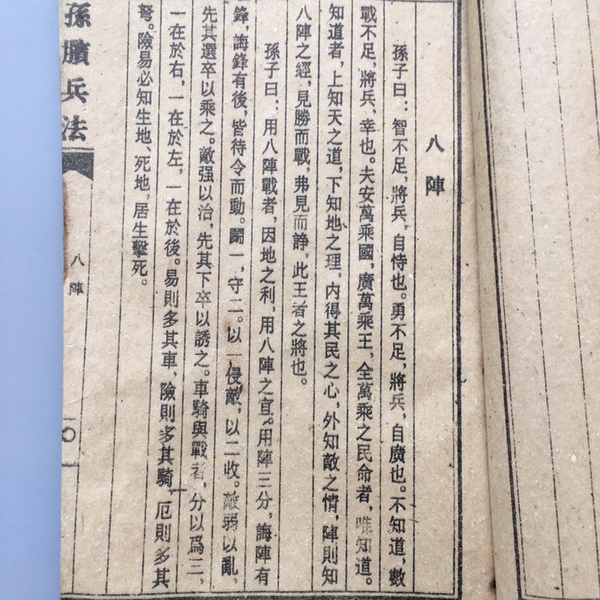 八陣
孫子曰：智不足，將兵，自恃也。勇不足，將兵，自廣也。不知道，數
戰不足，將兵，幸也。夫安萬乘國，廣萬乘王，全萬乘之民命者，唯知道。
知道者，上知天之道，下知地之理，內得其民之心，外知敵之情，陣則知
八陣之經，見勝而戰，弗見而諍，此王者之將也。
孫子曰：用八陣戰者，因地之利，用八陣之宜。用陣三分，誨陣有
鋒，誨鋒有後，皆待令而動。鬭一，守二。以一侵敵，以二收。敵弱以亂，
先其選卒以乘之。敵强以治，先其下卒以誘之。車騎與戰者，分以爲三，
一在於右，一在於左，一在於後。易則多其車，險則多其騎，厄則多其
弩。險易必知生地、死地，居生擊死。
孫臏兵法
八陣
一〇一